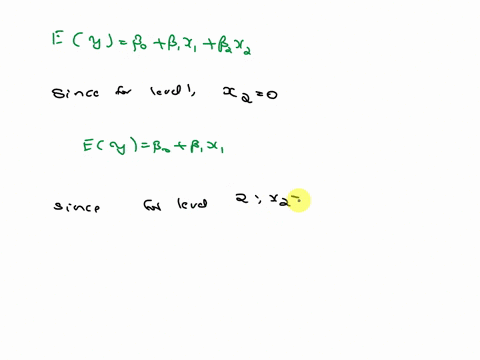 E(y) = β₀ + β₁x₁ + β₂x₂
since for level 1, x₂ = 0
E(y) = β₀ + β₁x₁
since for level 2; x₂ =